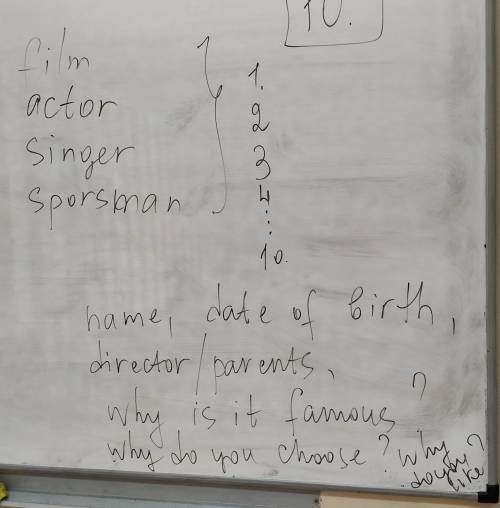 10.
film
actor
singer
sporsman
1.
2
3
4
10.
name, date of birth,
director/parents,
why is it famous?
why do you choose? why
do you?
like